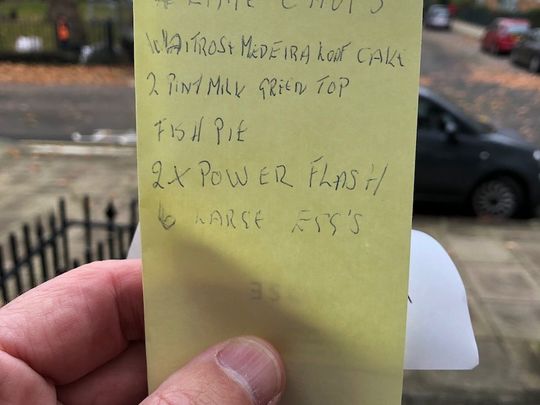 CHOPS
WAITROSE MEDEIRA LOAF CAKE
2 PINT MILK GREEN TOP
FISH PIE
2X POWER FLASH
6 LARGE EGG'S